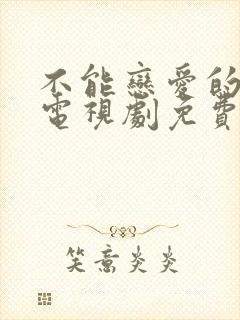 不能戀愛的
電視劇免費
笑意炎炎